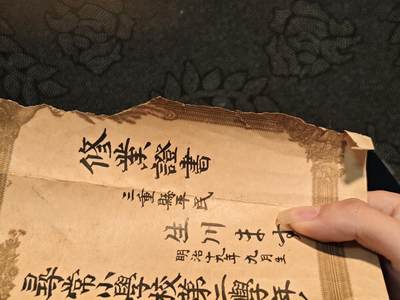 修業證書
三重縣平民
生川 ます
明治十九年九月生
尋常小學校第二學年